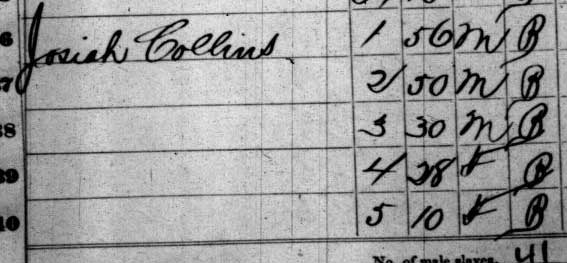 6 Josiah Collins 1 56 M B
37 2 50 M B
38 3 30 M B
39 4 28 F B
40 5 10 F B
No. of male slaves, 41